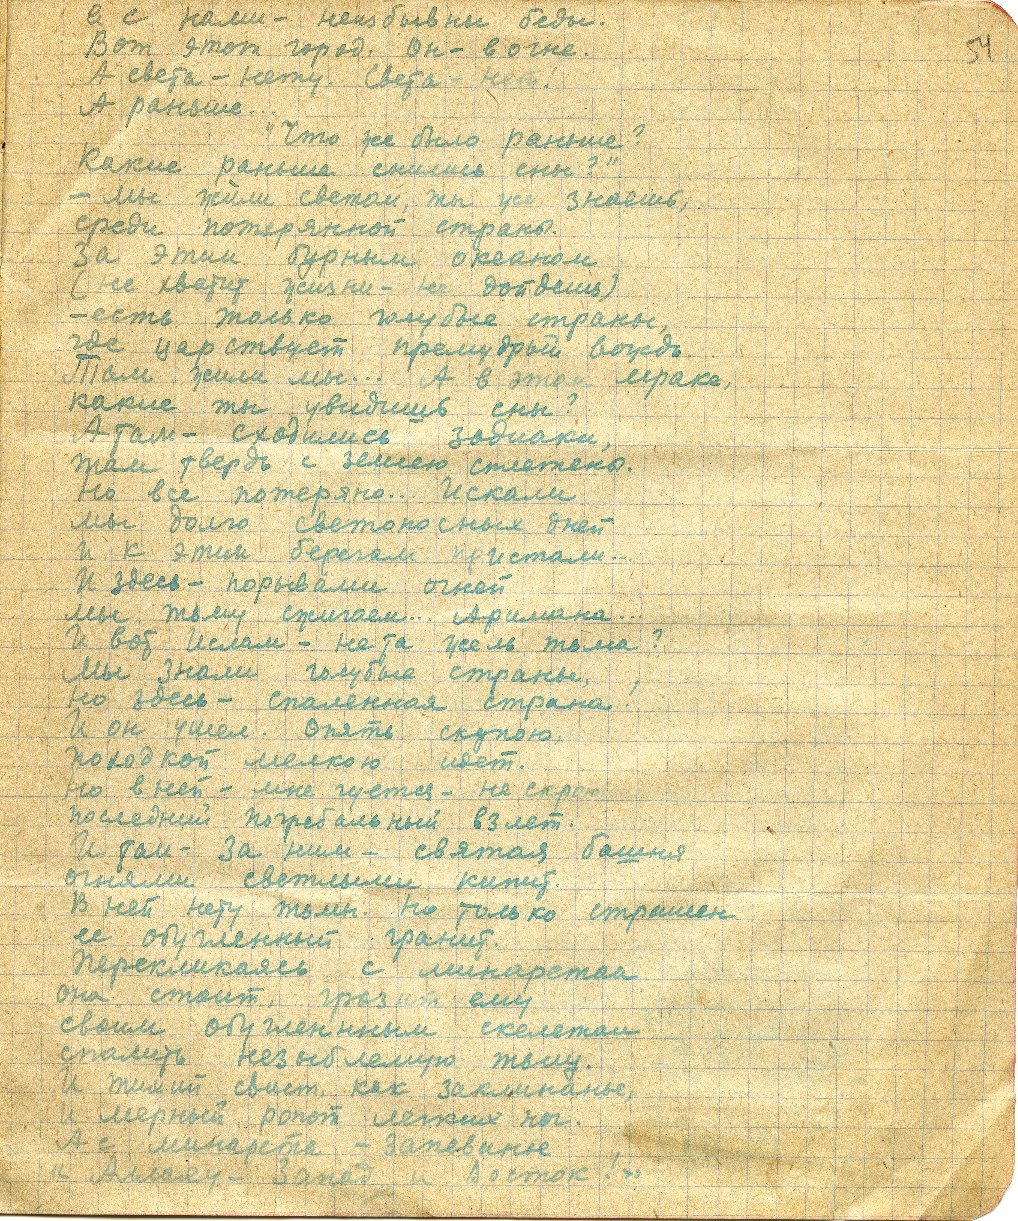 а с нами - неизбывны беды.
54
Вот этот город. Он - в огне.
А света - нету. Света - нет!
А раньше...
"Что же было раньше?
Какие раньше снились сны?"
- Мы жили светом, ты уж знаешь,
среди потерянной страны.
За этим бурным океаном
(не хватит жизни - не дойдешь)
- есть только голубые страны,
где царствует премудрый вождь.
Там жили мы... А в этом мраке,
какие ты увидишь сны?
А там - сходились зодиаки,
там твердь с землею сплетены.
Но все потеряно... Искали
мы долго светоносных дней
И к этим берегам пристали...
И здесь - порывами огней
мы тьму сжигаем... Аримана...
И вот Ислам - не та жель тьма?
Мы знали голубые страны,
но здесь - спаленная страна!
И он ушел. Опять скупою,
походкой мелкою идет.
Но в ней - мне чуется - не скрою
последний погребальный взлет.
И там - за ним - святая башня
огнями светлыми кипит.
В ней нету тьмы. Но только страшен
ее обугленный гранит.
Перекликаясь с минаретом
она стоит, грозит ему
своим обугленным скелетом
спалить незыблемую тьму.
И тихий свист, как заклинанье,
и мерный ропот легких ног.
А с минарета - Запеванье
"и Аллаху - Запад и Восток!"..